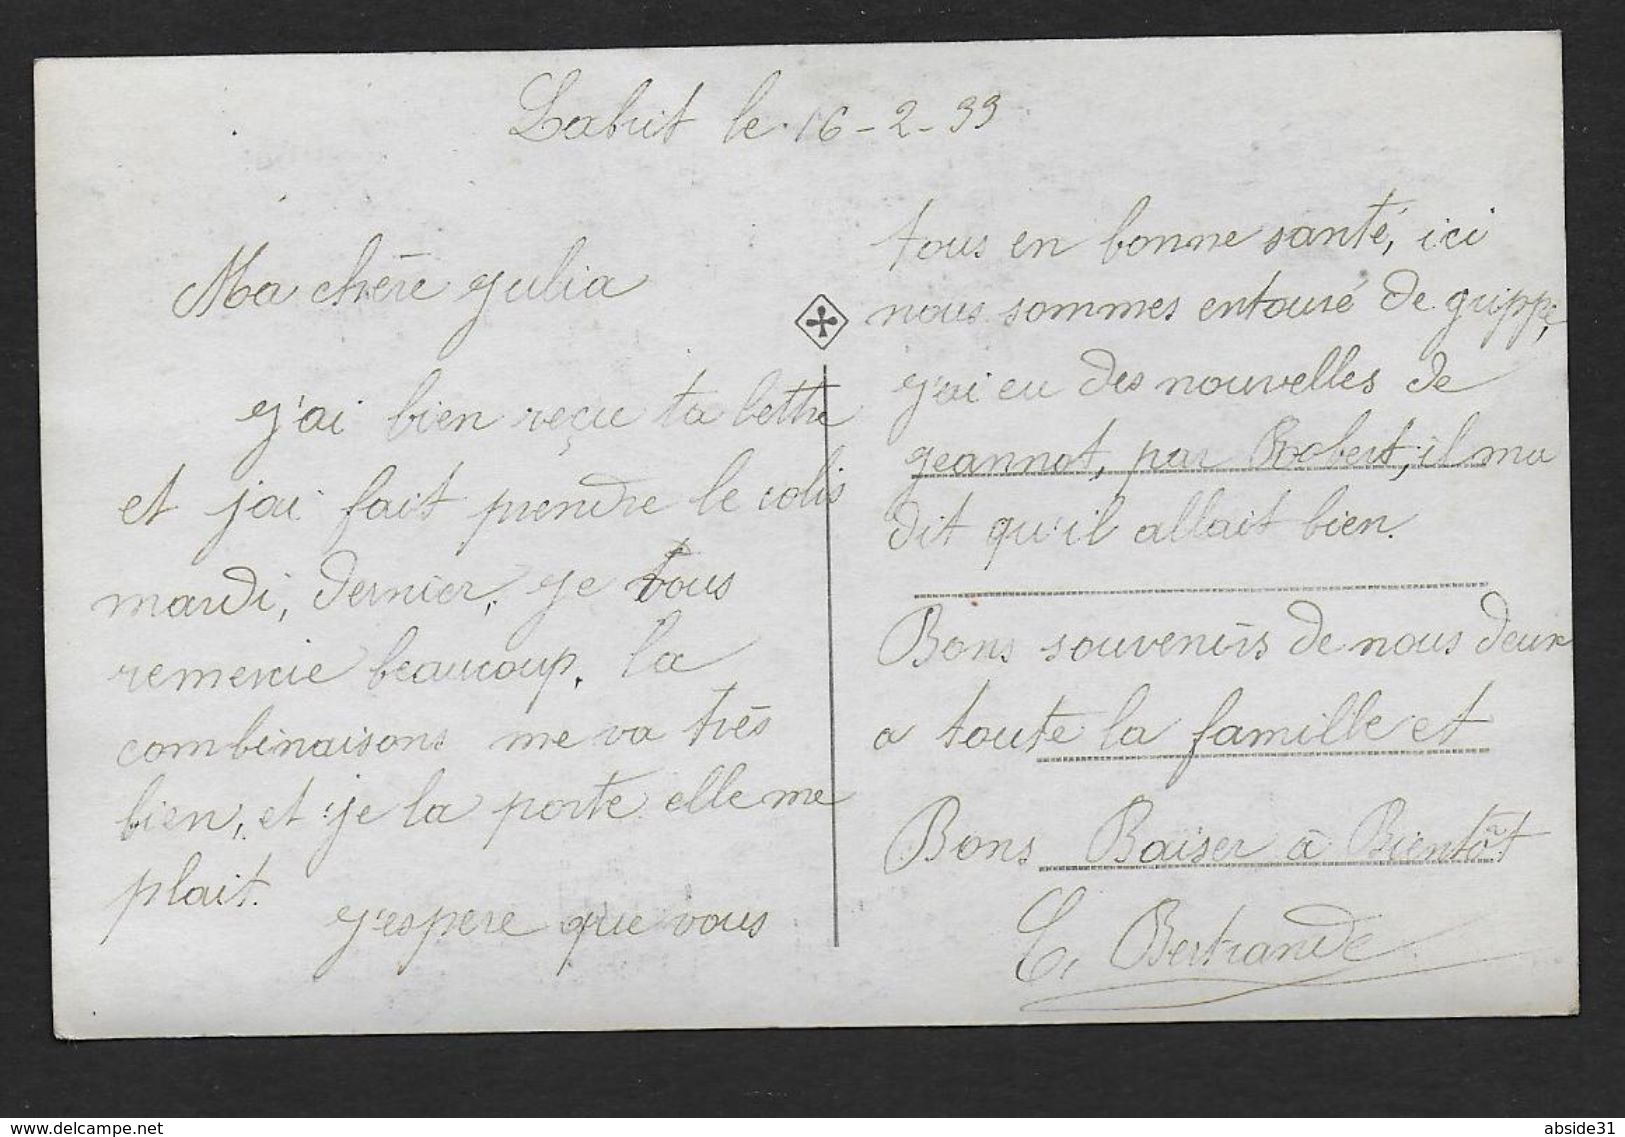 Labrit le 16-2-33
Ma chère Julia
J'ai bien reçu ta lettre
et j'ai fait prendre le colis
mardi, dernier, je vous
remercie beaucoup. la
combinaisons me va très
bien, et je la porte elle me
plait.
J'espere que vous
tous en bonne santé, ici
nous sommes entouré de grippe,
j'ai eu des nouvelles de
Jeannot, par Robert, il ma
dit qu'il allait bien.
Bons souvenirs de nous deux
a toute la famille et
Bons Baiser à Bientôt
Bertrande
www.delcampe.net
abside31